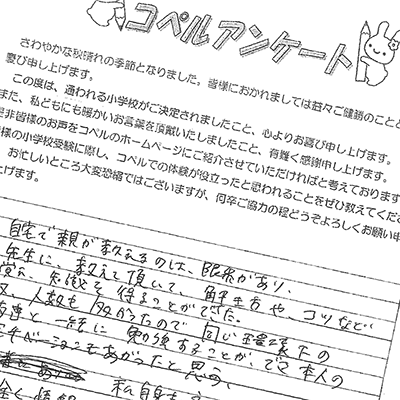 コペルアンケート
さわやかな秋晴れの季節となりました。皆様におかれましては益々ご健勝のことと
慶び申し上げます。
この度は、通われる小学校がご決定されましたこと、心よりお喜び申し上げます。
また、私どもにも暖かいお言葉を頂戴いたしましたこと、有難く感謝申し上げます。
是非皆様のお声をコペルのホームページにご紹介させていただければと考えております
様の小学校受験に際し、コペルでの体験が役立ったと思われることをぜひ教えてくださ
お忙しいところ大変恐縮ではございますが、何卒ご協力の程どうぞよろしくお願い申
上げます。
自宅で親が教えるのは、限界があり、
先生に、教えて頂いて、解き方や、コツなど
覚え、知識を得ることができた。
又、人数も多かったので同じ環境下の
と一緒に勉強することができ本人の
モチベーションもあがったと思う。
私自身も